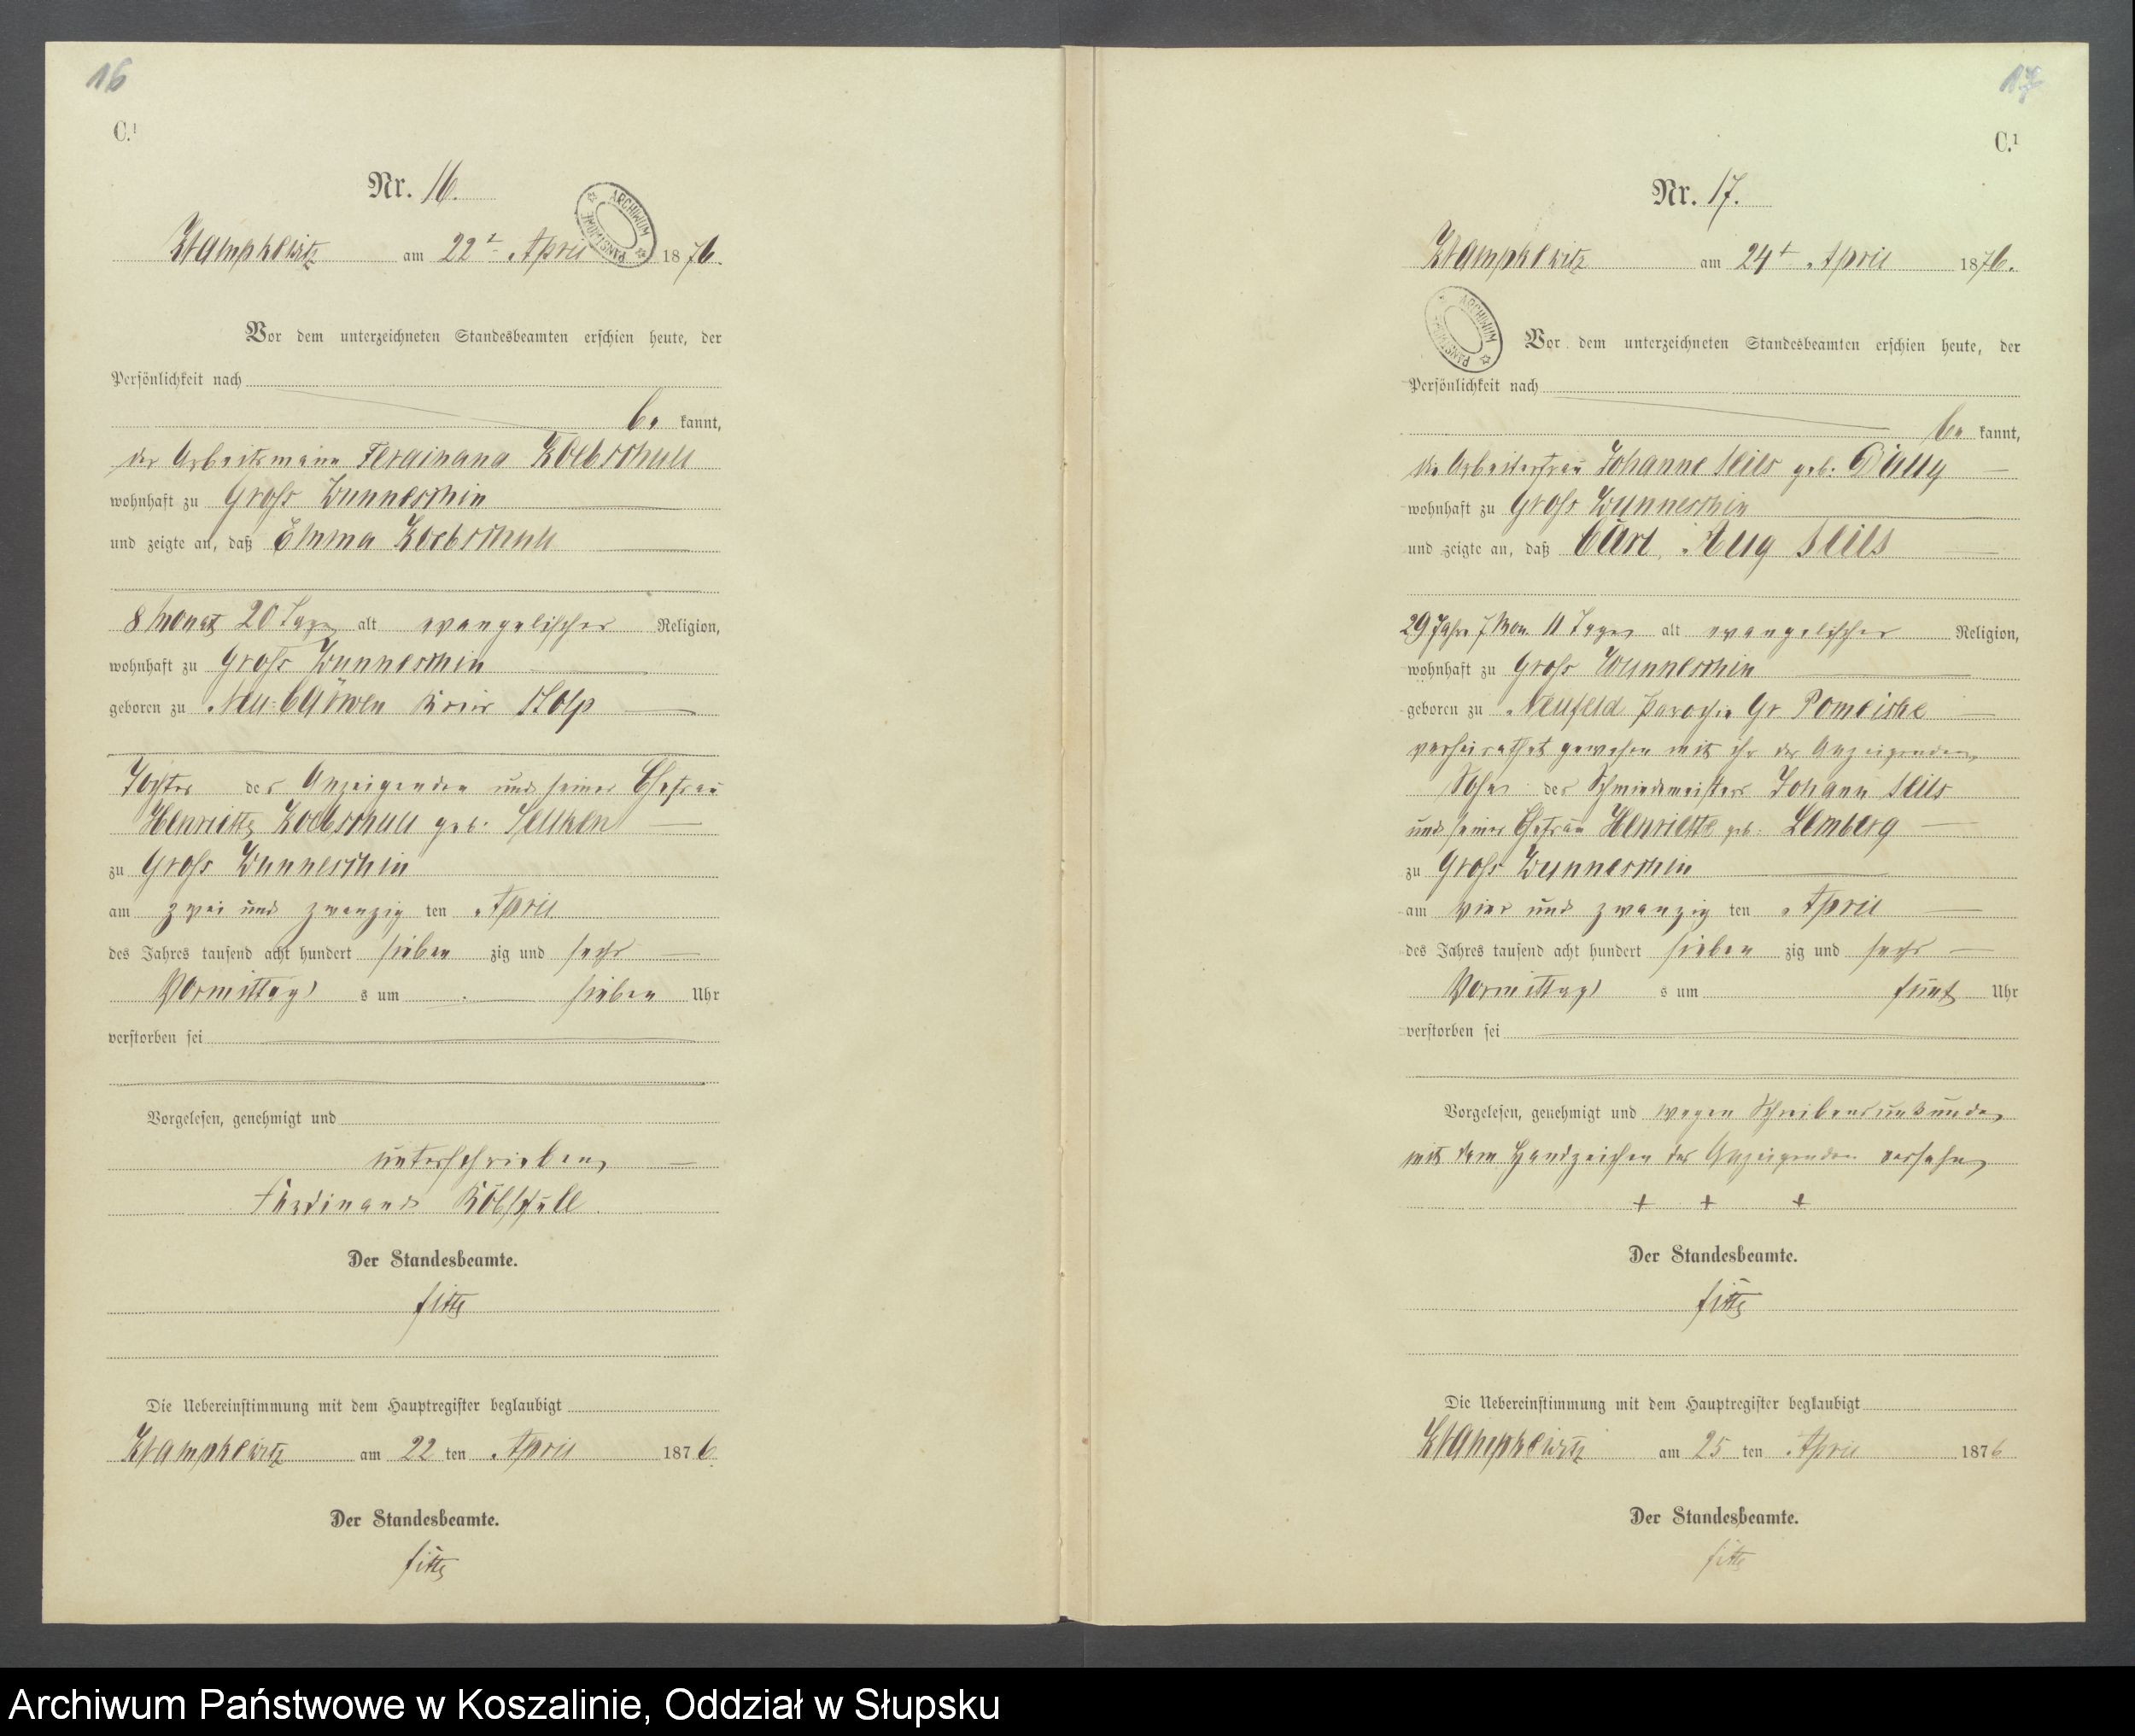 16
C.¹
Nr. 16.
ARCHIWUM PAŃSTWOWE
Krampkewitz am 22t April 1876.
Vor dem unterzeichneten Standesbeamten erschien heute, der
Persönlichkeit nach
be kannt,
der Arbeitsmann Ferdinand Koebschull
wohnhaft zu Gross Wunneschin
und zeigte an, daß Emma Koebschull
8 Monat 20 Tage alt evangelischer Religion,
wohnhaft zu Gross Wunneschin
geboren zu Neu- Kreis Stolp
Tochter des Anzeigenden und seiner Ehefrau
Henriette Koebschull geb.
zu Gross Wunneschin
am zwei und zwanzig ten April
des Jahres tausend acht hundert sieben zig und sechs
Vormittag s um sieben Uhr
verstorben sei
Vorgelesen, genehmigt und
unterschrieben
Ferdinand Köbschull.
Der Standesbeamte.
Die Uebereinstimmung mit dem Hauptregister beglaubigt
Krampkewitz am 22 ten April 1876.
Der Standesbeamte.
17
C.¹
Nr. 17.
Krampkewitz am 24t April 1876.
ARCHIWUM PAŃSTWOWE
Vor dem unterzeichneten Standesbeamten erschien heute, der
Persönlichkeit nach
be kannt,
die Arbeiterfrau Johanne geb.
wohnhaft zu Gross Wunneschin
und zeigte an, daß Carl Aug
29 Jahre 7 Mon 11 Tage alt evangelischer Religion,
wohnhaft zu Gross Wunneschin
geboren zu Neufeld Parochie Gr Pomeiske
verheirathet gewesen mit ihr der Anzeigenden
Sohn des Schmiedemeisters Johann
und seiner Ehefrau Henriette geb. Lemberg
zu Gross Wunneschin
am vier und zwanzig ten April
des Jahres tausend acht hundert sieben zig und sechs
Vormittag s um fünf Uhr
verstorben sei
Vorgelesen, genehmigt und wegen Schreibensunkunde
mit dem Handzeichen der Anzeigenden versehen
+ + +
Der Standesbeamte.
Die Uebereinstimmung mit dem Hauptregister beglaubigt
Krampkewitz am 25 ten April 1876
Der Standesbeamte.
Archiwum Państwowe w Koszalinie, Oddział w Słupsku